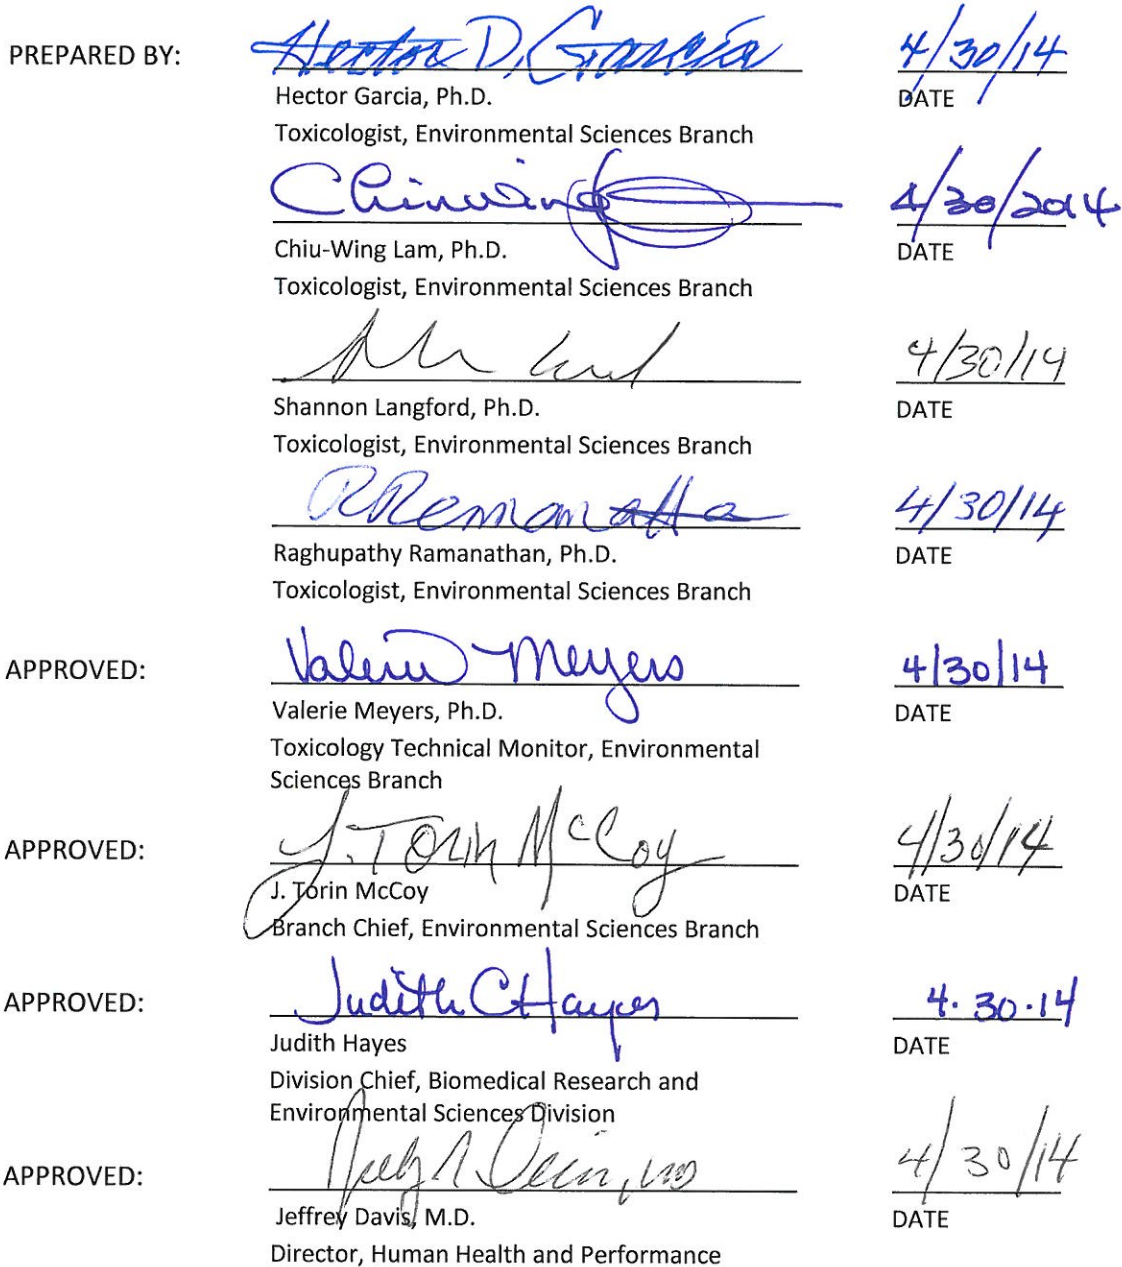 PREPARED BY:
Hector D. Garcia 4/30/14
Hector Garcia, Ph.D. DATE
Toxicologist, Environmental Sciences Branch
Chiuwing 4/30/2014
Chiu-Wing Lam, Ph.D. DATE
Toxicologist, Environmental Sciences Branch
4/30/14
Shannon Langford, Ph.D. DATE
Toxicologist, Environmental Sciences Branch
RRamanatha 4/30/14
Raghupathy Ramanathan, Ph.D. DATE
Toxicologist, Environmental Sciences Branch
APPROVED: Valerie Meyers 4/30/14
Valerie Meyers, Ph.D. DATE
Toxicology Technical Monitor, Environmental
Sciences Branch
APPROVED: J. Torin McCoy 4/30/14
J. Torin McCoy DATE
Branch Chief, Environmental Sciences Branch
APPROVED: Judith C Hayes 4.30.14
Judith Hayes DATE
Division Chief, Biomedical Research and
Environmental Sciences Division
APPROVED: 4/30/14
Jeffrey Davis, M.D. DATE
Director, Human Health and Performance